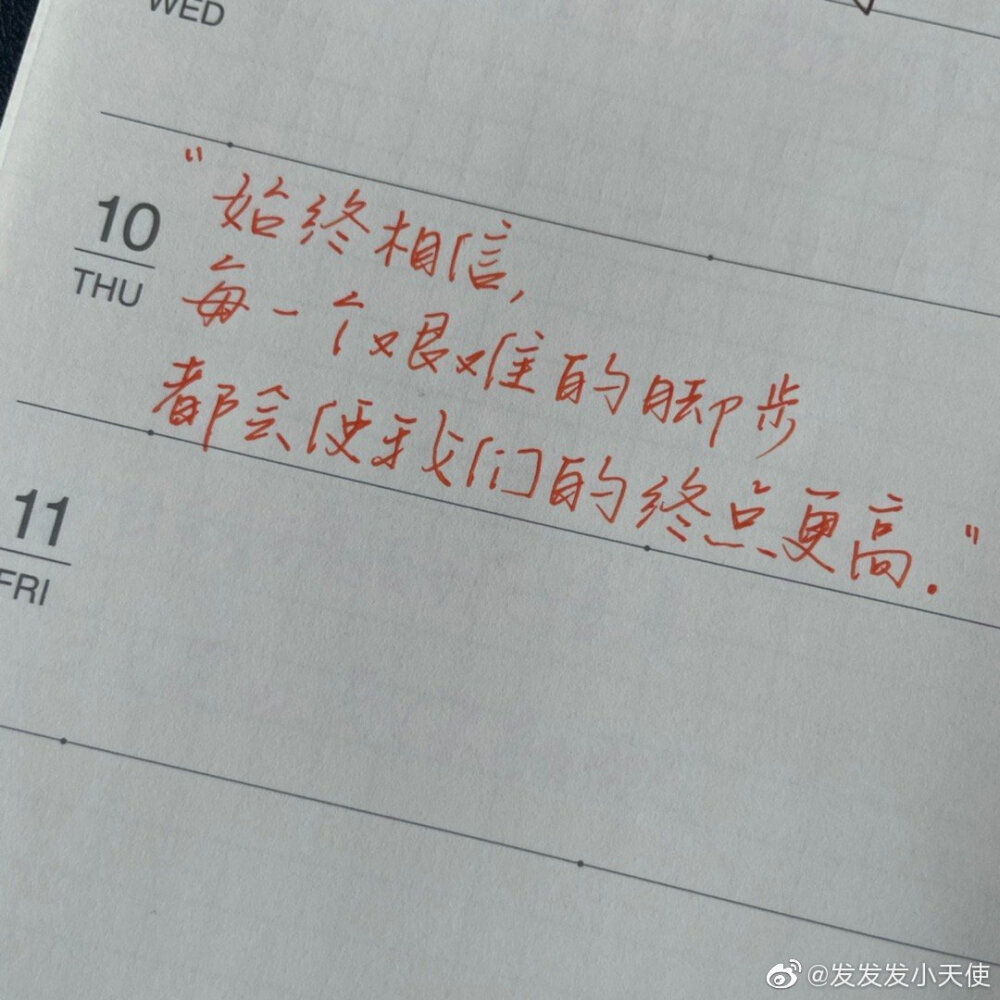 WED
10
THU
"始终相信,
每一个艰难的脚步
都会使我们的终点更高."
11
FRI
@发发发小天使